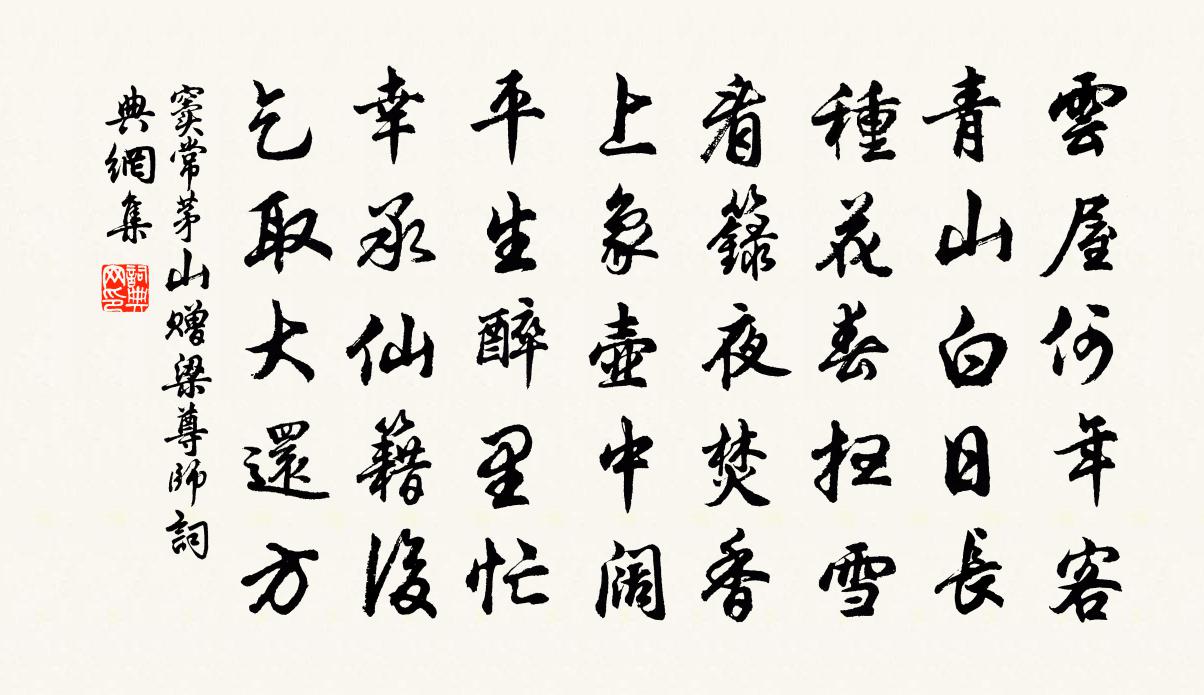 雲屋何年客
青山白日長
種花春掃雪
看籙夜焚香
上象壺中闊
平生醉里忙
幸承仙籍後
乞取大還方
竇常茅山贈梁尊師詞
典網集
詞典
网印